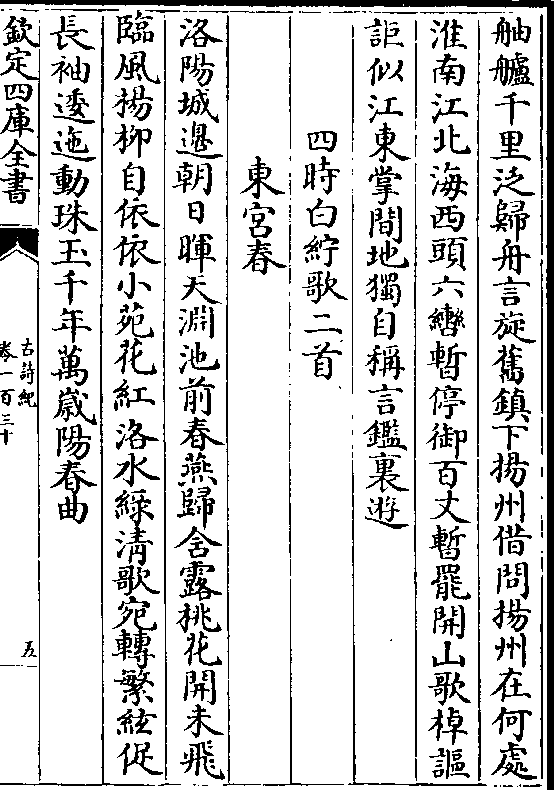 舳艫千里泛歸舟言旋舊鎮下揚州借問揚州在何處
淮南江北海西頭六轡暫停御百丈暫罷開山歌棹謳
詎似江東掌間地獨自稱言鑑裏遊
四時白紵歌二首
東宮春
洛陽城邊朝日暉天淵池前春燕歸含露桃花開未飛
臨風揚柳自依依小苑花紅洛水綠清歌宛轉繁絃促
長袖逶迤動珠玉千年萬歲陽春曲
欽定四庫全書
古詩紀
卷一百三十
五